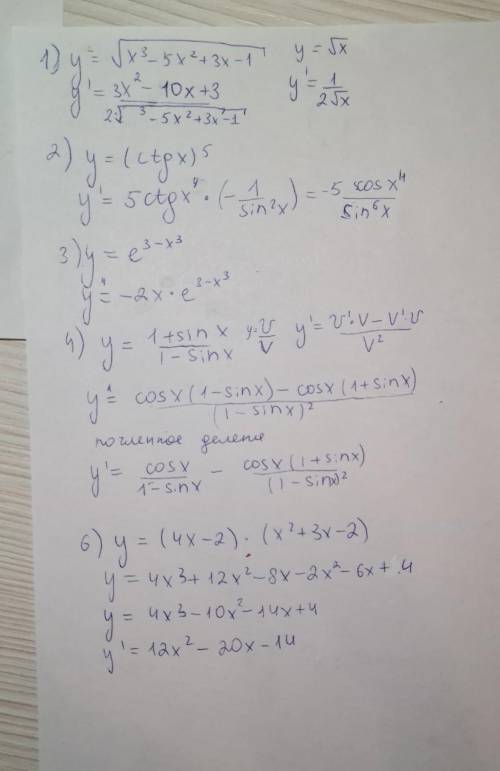 1) y = √(x³ - 5x² + 3x - 1)   y = √x
y' = (3x² - 10x + 3) / (2√(³ - 5x² + 3x - 1))   y' = 1/(2√x)
2) y = (ctgx)⁵
y' = 5ctgx⁴ · (-1/sin²x) = -5 cosx⁴/sin⁶x
3) y = e^(3-x³)
y' = -2x · e^(3-x³)
4) y = (1+sinx)/(1-sinx)   y = U/V   y' = (U'·V - V'·U)/V²
y' = (cosx(1-sinx) - cosx(1+sinx))/(1-sinx)²
почленное деление
y' = cosx/(1-sinx) - cosx(1+sinx)/(1-sinx)²
6) y = (4x-2) · (x²+3x-2)
y = 4x3 + 12x² - 8x - 2x² - 6x + 4
y = 4x3 - 10x² - 14x + 4
y' = 12x² - 20x - 14